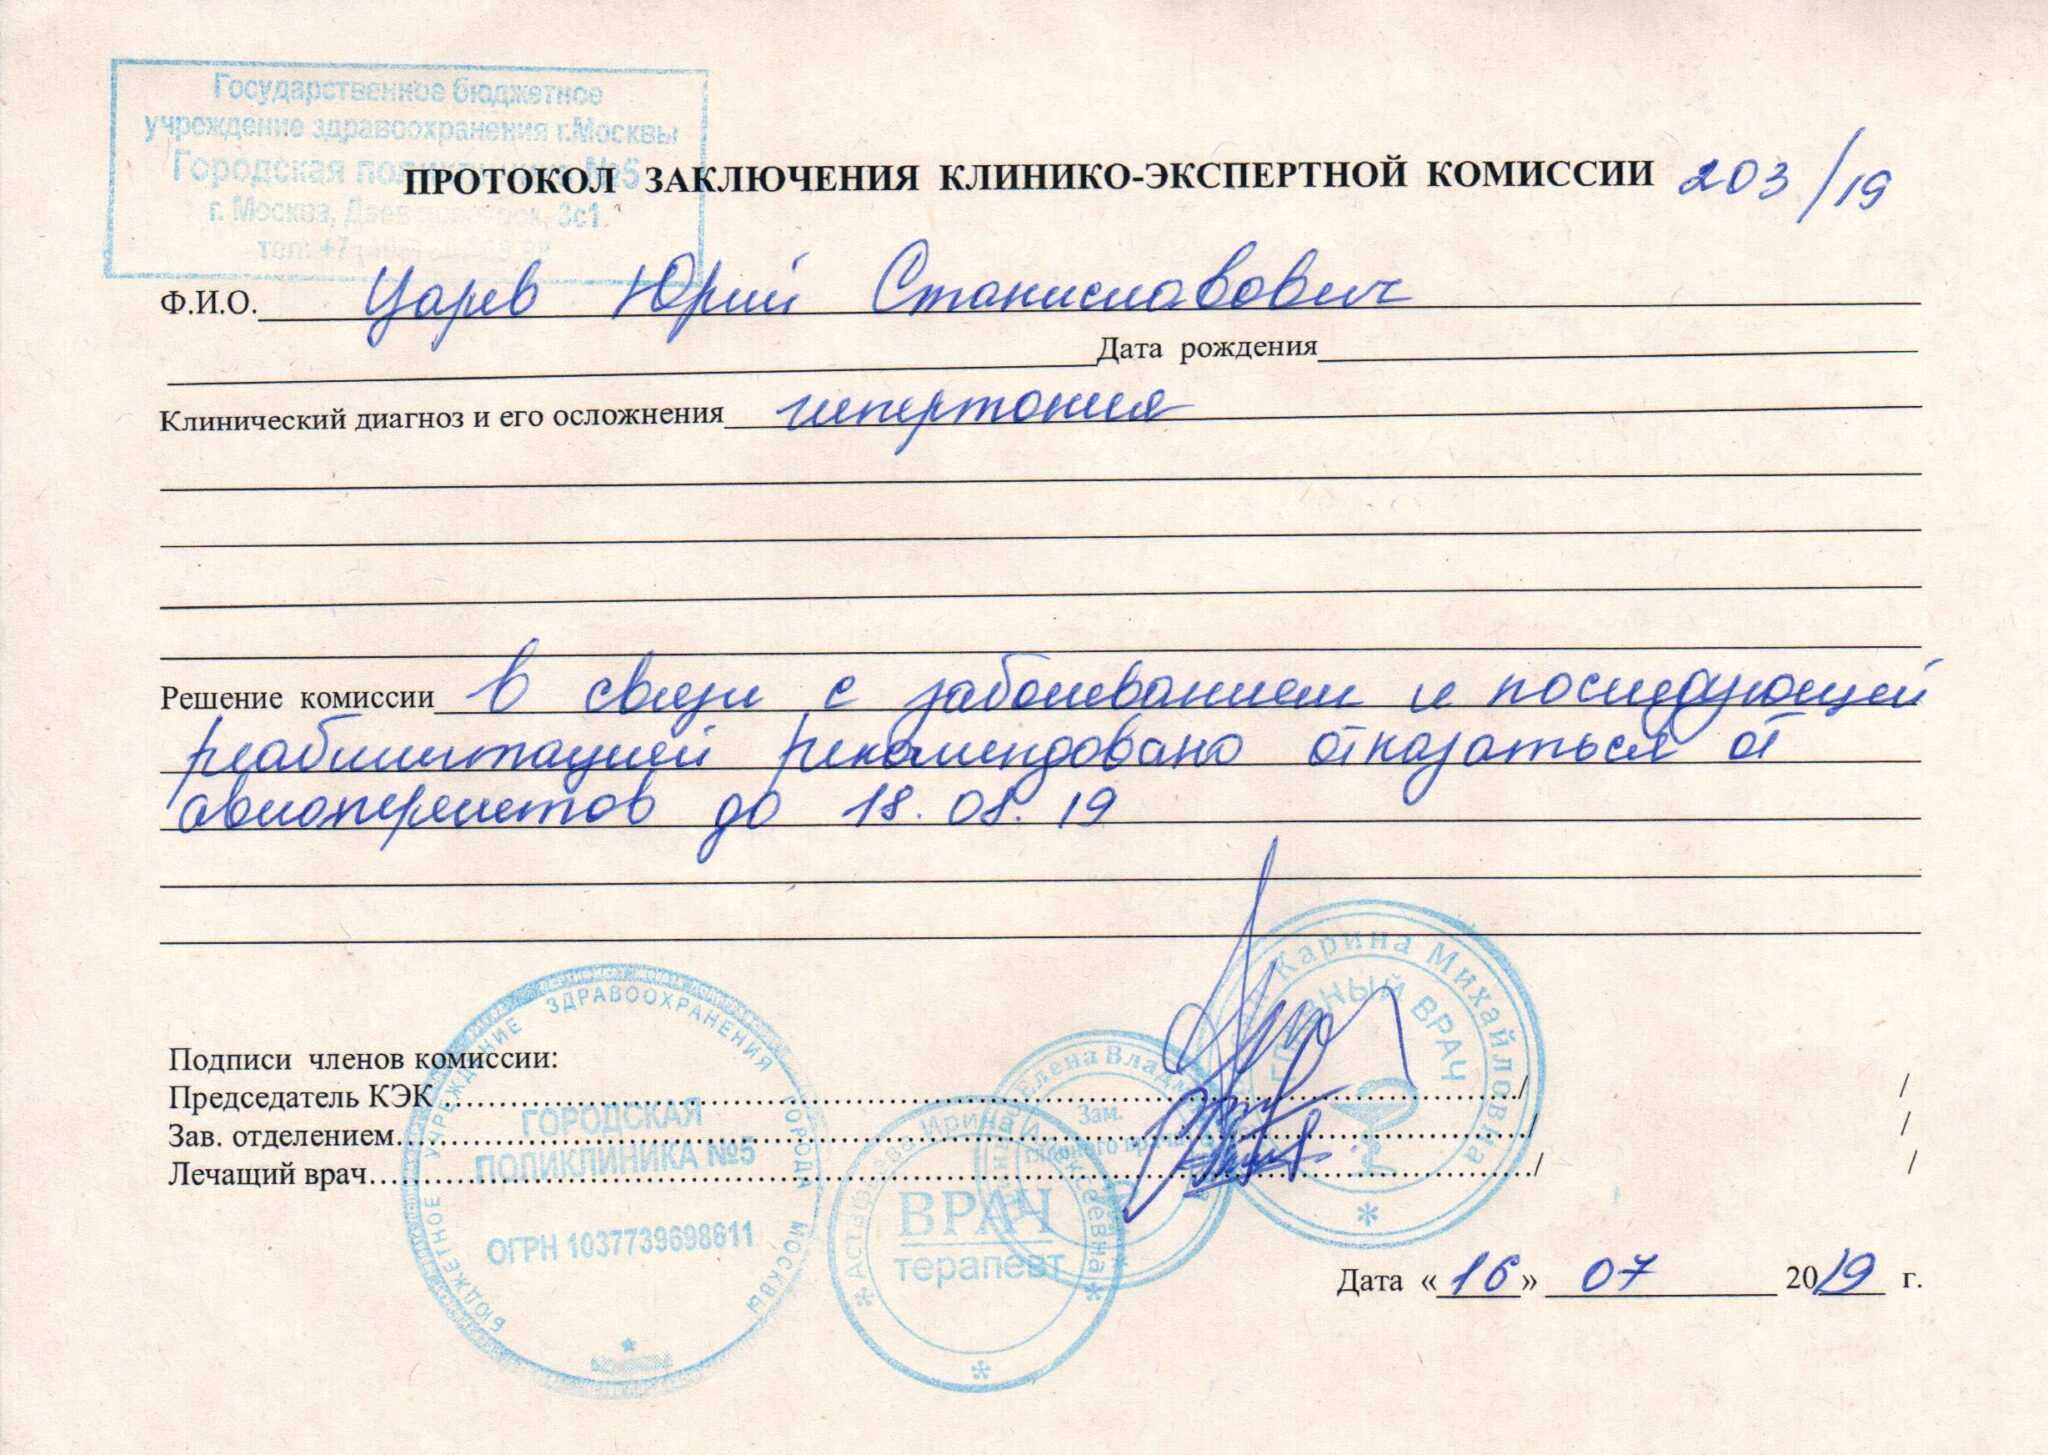 Государственное бюджетное
учреждение здравоохранения г.Москвы
Городская поликлиника №5
г. Москва, 3с1.
тел: +7
ПРОТОКОЛ ЗАКЛЮЧЕНИЯ КЛИНИКО-ЭКСПЕРТНОЙ КОМИССИИ 203/19
Ф.И.О. Царев Юрий Станиславович
Дата рождения
Клинический диагноз и его осложнения гипертония
Решение комиссии в связи с заболеванием и последующей
реабилитацией рекомендовано отказаться от
авиоперелетов до 18.08.19
Карина Михайловна
ГЛАВНЫЙ ВРАЧ
БЮДЖЕТНОЕ УЧРЕЖДЕНИЕ ЗДРАВООХРАНЕНИЯ ГОРОДА МОСКВЫ
ГОРОДСКАЯ
ПОЛИКЛИНИКА №5
ОГРН 1037739698611
Елена
Зам.
главного врача
Ирина
ВРАЧ
терапевт
Подписи членов комиссии:
Председатель КЭК / /
Зав. отделением / /
Лечащий врач / /
Дата «16» 07 2019 г.